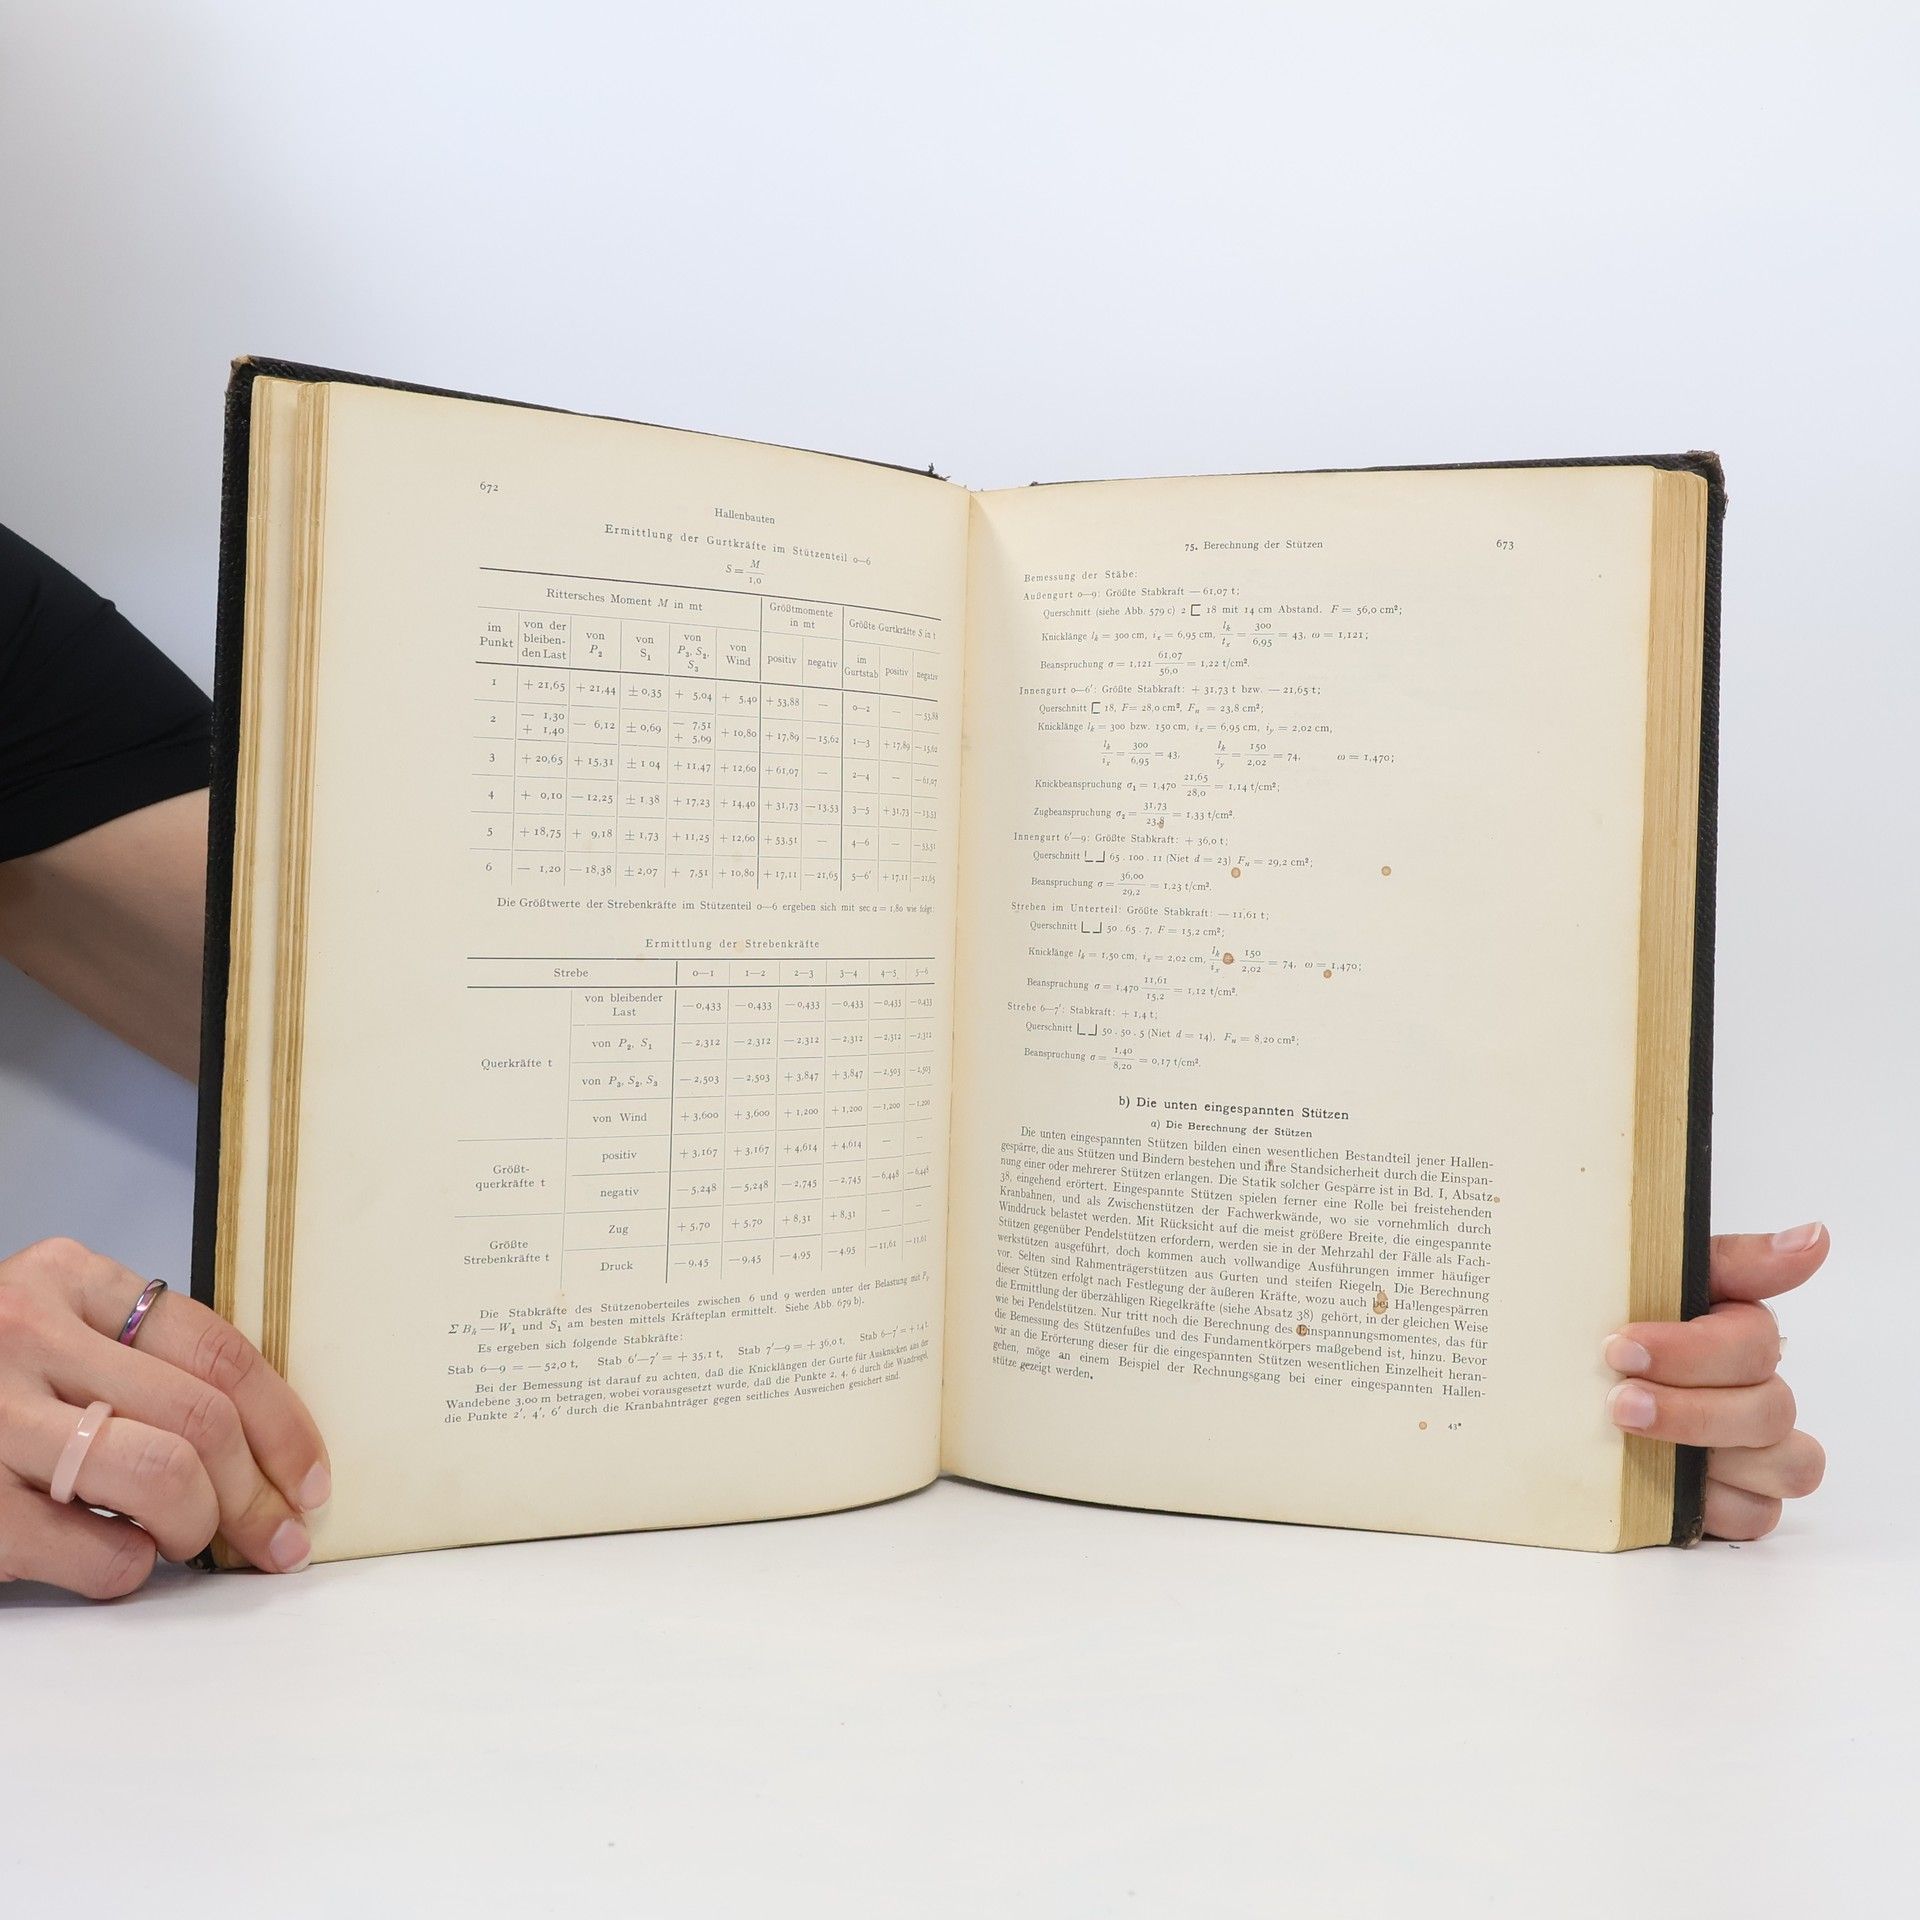 672
Hallenbauten
Ermittlung der Gurtkräfte im Stützenteil 0—6
S = M / 1,0
Rittersches Moment M in mt | Größtmomente in mt | Größte Gurtkräfte S in t
im Punkt | von der bleiben-den Last | von P₂ | von S₁ | von P₃, S₂, S₃ | von Wind | positiv | negativ | im Gurtstab | positiv | negativ
1 | + 21,65 | + 21,44 | ± 0,35 | + 5,04 | + 5,40 | + 53,88 | — | 0—2 | — | — 53,88
2 | — 1,30 + 1,40 | — 6,12 | ± 0,69 | — 7,51 + 5,69 | + 10,80 | + 17,89 | — 15,62 | 1—3 | + 17,89 | — 15,62
3 | + 20,65 | + 15,31 | ± 1 04 | + 11,47 | + 12,60 | + 61,07 | — | 2—4 | — | — 61,07
4 | + 0,10 | — 12,25 | ± 1,38 | + 17,23 | + 14,40 | + 31,73 | — 13,53 | 3—5 | + 31,73 | — 13,53
5 | + 18,75 | + 9,18 | ± 1,73 | + 11,25 | + 12,60 | + 53,51 | — | 4—6 | — | — 53,51
6 | — 1,20 | — 18,38 | ± 2,07 | + 7,51 | + 10,80 | + 17,11 | — 21,65 | 5—6′ | + 17,11 | — 21,65
Die Größtwerte der Strebenkräfte im Stützenteil 0—6 ergeben sich mit sec α = 1,80 wie folgt:
Ermittlung der Strebenkräfte
Strebe | 0—1 | 1—2 | 2—3 | 3—4 | 4—5 | 5—6
Querkräfte t | von bleibender Last | — 0,433 | — 0,433 | — 0,433 | — 0,433 | — 0,433 | — 0,433
von P₂, S₁ | — 2,312 | — 2,312 | — 2,312 | — 2,312 | — 2,312 | — 2,312
von P₃, S₂, S₃ | — 2,503 | — 2,503 | + 3,847 | + 3,847 | — 2,503 | — 2,503
von Wind | + 3,600 | + 3,600 | + 1,200 | + 1,200 | — 1,200 | — 1,200
Größt-querkräfte t | positiv | + 3,167 | + 3,167 | + 4,614 | + 4,614 | — | —
negativ | — 5,248 | — 5,248 | — 2,745 | — 2,745 | — 6,448 | — 6,448
Größte Strebenkräfte t | Zug | + 5,70 | + 5,70 | + 8,31 | + 8,31 | — | —
Druck | — 9,45 | — 9,45 | — 4,95 | — 4,95 | — 11,61 | — 11,61
Die Stabkräfte des Stützenoberteiles zwischen 6 und 9 werden unter der Belastung mit P₂,
Σ B_h — W₁ und S₁ am besten mittels Kräfteplan ermittelt. Siehe Abb. 679 b).
Es ergeben sich folgende Stabkräfte:
Stab 6—9 = — 52,0 t, Stab 6′—7′ = + 35,1 t, Stab 7′—9 = + 36,0 t, Stab 6—7′ = + 1,4 t.
Bei der Bemessung ist darauf zu achten, daß die Knicklängen der Gurte für Ausknicken aus der
Wandebene 3,00 m betragen, wobei vorausgesetzt wurde, daß die Punkte 2, 4, 6 durch die Wandriegel,
die Punkte 2′, 4′, 6′ durch die Kranbahnträger gegen seitliches Ausweichen gesichert sind.
75. Berechnung der Stützen 673
Bemessung der Stäbe:
Außengurt 0—9: Größte Stabkraft — 61,07 t;
Querschnitt (siehe Abb. 579 c) 2 [ 18 mit 14 cm Abstand. F = 56,0 cm²;
Knicklänge l_k = 300 cm, i_x = 6,95 cm, l_k / i_x = 300 / 6,95 = 43, ω = 1,121;
Beanspruchung σ = 1,121 61,07 / 56,0 = 1,22 t/cm².
Innengurt 0—6′: Größte Stabkraft: + 31,73 t bzw. — 21,65 t;
Querschnitt [ 18, F = 28,0 cm², F_n = 23,8 cm²;
Knicklänge l_k = 300 bzw. 150 cm, i_x = 6,95 cm, i_y = 2,02 cm,
l_k / i_x = 300 / 6,95 = 43, l_k / i_y = 150 / 2,02 = 74, ω = 1,470;
Knickbeanspruchung σ₁ = 1,470 21,65 / 28,0 = 1,14 t/cm²;
Zugbeanspruchung σ₂ = 31,73 / 23,8 = 1,33 t/cm².
Innengurt 6′—9: Größte Stabkraft: + 36,0 t;
Querschnitt ⌊ ⌋ 65 . 100 . 11 (Niet d = 23) F_n = 29,2 cm²;
Beanspruchung σ = 36,00 / 29,2 = 1,23 t/cm².
Streben im Unterteil: Größte Stabkraft: — 11,61 t;
Querschnitt ⌊ ⌋ 50 . 65 . 7, F = 15,2 cm²;
Knicklänge l_k = 1,50 cm, i_x = 2,02 cm, l_k / i_x = 150 / 2,02 = 74, ω = 1,470;
Beanspruchung σ = 1,470 11,61 / 15,2 = 1,12 t/cm².
Strebe 6—7′: Stabkraft: + 1,4 t;
Querschnitt ⌊ ⌋ 50 . 50 . 5 (Niet d = 14), F_n = 8,20 cm²;
Beanspruchung σ = 1,40 / 8,20 = 0,17 t/cm².
b) Die unten eingespannten Stützen
α) Die Berechnung der Stützen
Die unten eingespannten Stützen bilden einen wesentlichen Bestandteil jener Hallen-
gespärre, die aus Stützen und Bindern bestehen und ihre Standsicherheit durch die Einspan-
nung einer oder mehrerer Stützen erlangen. Die Statik solcher Gespärre ist in Bd. I, Absatz
38, eingehend erörtert. Eingespannte Stützen spielen ferner eine Rolle bei freistehenden
Kranbahnen, und als Zwischenstützen der Fachwerkwände, wo sie vornehmlich durch
Winddruck belastet werden. Mit Rücksicht auf die meist größere Breite, die eingespannte
Stützen gegenüber Pendelstützen erfordern, werden sie in der Mehrzahl der Fälle als Fach-
werkstützen ausgeführt, doch kommen auch vollwandige Ausführungen immer häufiger
vor. Selten sind Rahmenträgerstützen aus Gurten und steifen Riegeln. Die Berechnung
dieser Stützen erfolgt nach Festlegung der äußeren Kräfte, wozu auch bei Hallengespärren
die Ermittlung der überzähligen Riegelkräfte (siehe Absatz 38) gehört, in der gleichen Weise
wie bei Pendelstützen. Nur tritt noch die Berechnung des Einspannungsmomentes, das für
die Bemessung des Stützenfußes und des Fundamentkörpers maßgebend ist, hinzu. Bevor
wir an die Erörterung dieser für die eingespannten Stützen wesentlichen Einzelheit heran-
gehen, möge an einem Beispiel der Rechnungsgang bei einer eingespannten Hallen-
stütze gezeigt werden.
43*